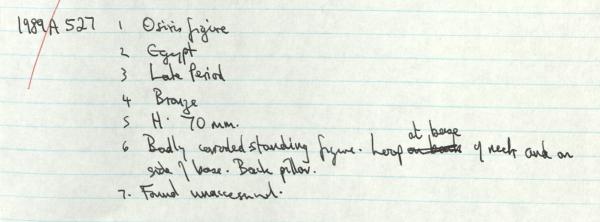 1989A 527 1 Osiris figure
2 Egypt
3 Late Period
4 Bronze
5 H. 70 mm.
6 Badly corroded standing figure. Loop on back at base of neck and on
side of base. Back pillar.
7. Found unaccessioned.